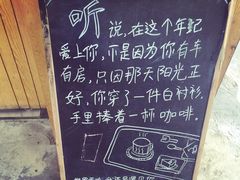 听说,在这个年纪
爱上你,不是因为你有车
有房,只因那天阳光正
好,你穿了一件白衬衫
手里捧着一杯咖啡.